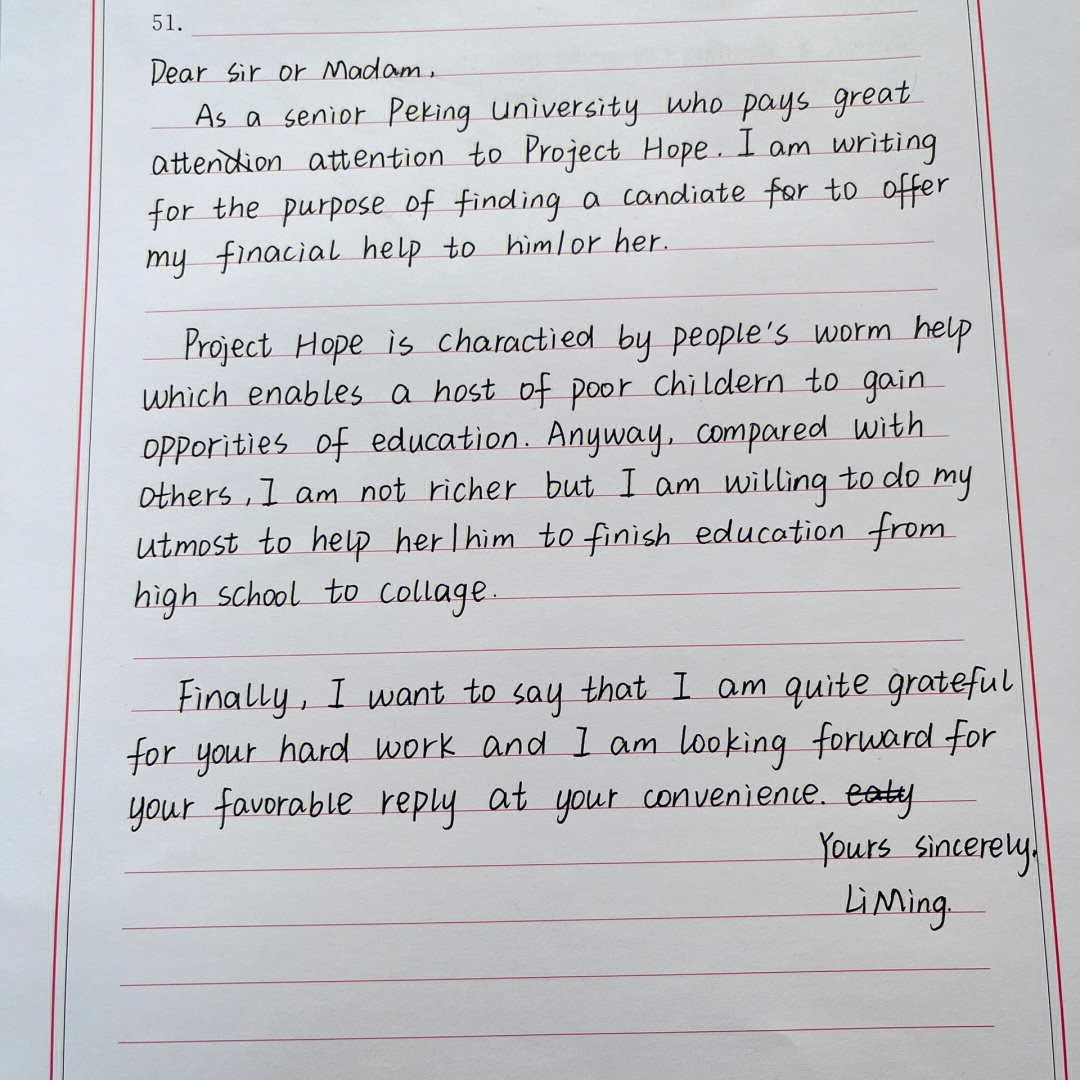 51.
Dear Sir or Madam,
As a senior Peking University who pays great
attendion attention to Project Hope. I am writing
for the purpose of finding a candiate for to offer
my finacial help to him/or her.
Project Hope is charactied by people's worm help
which enables a host of poor childern to gain
opporities of education. Anyway, compared with
others, I am not richer but I am willing to do my
utmost to help her/him to finish education from
high school to collage.
Finally, I want to say that I am quite grateful
for your hard work and I am looking forward for
your favorable reply at your convenience. eaty
Yours sincerely,
Li Ming.